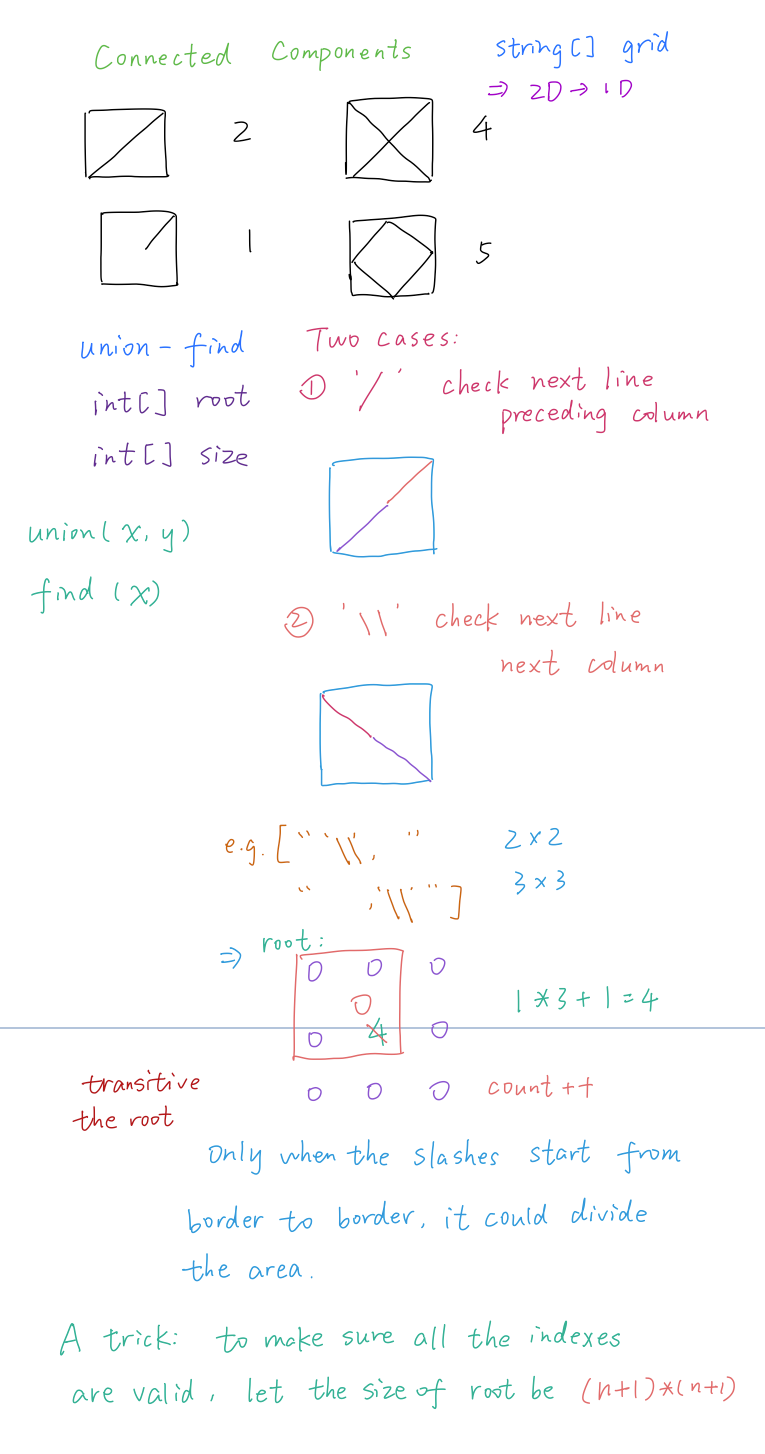 Connected Components
string[] grid
⇒ 2D → 1D
2
4
1
5
union - find
int[] root
int[] size
union(x, y)
find (x)
Two cases:
① '/' check next line
preceding column
② '\\' check next line
next column
e.g. [“ '\\', ”
“ , '\\' ”]
2 × 2
3 × 3
⇒ root:
0 0 0
0
0 4 0
0 0 0
1 * 3 + 1 = 4
count ++
transitive
the root
Only when the slashes start from
border to border, it could divide
the area.
A trick: to make sure all the indexes
are valid, let the size of root be (n+1)*(n+1)